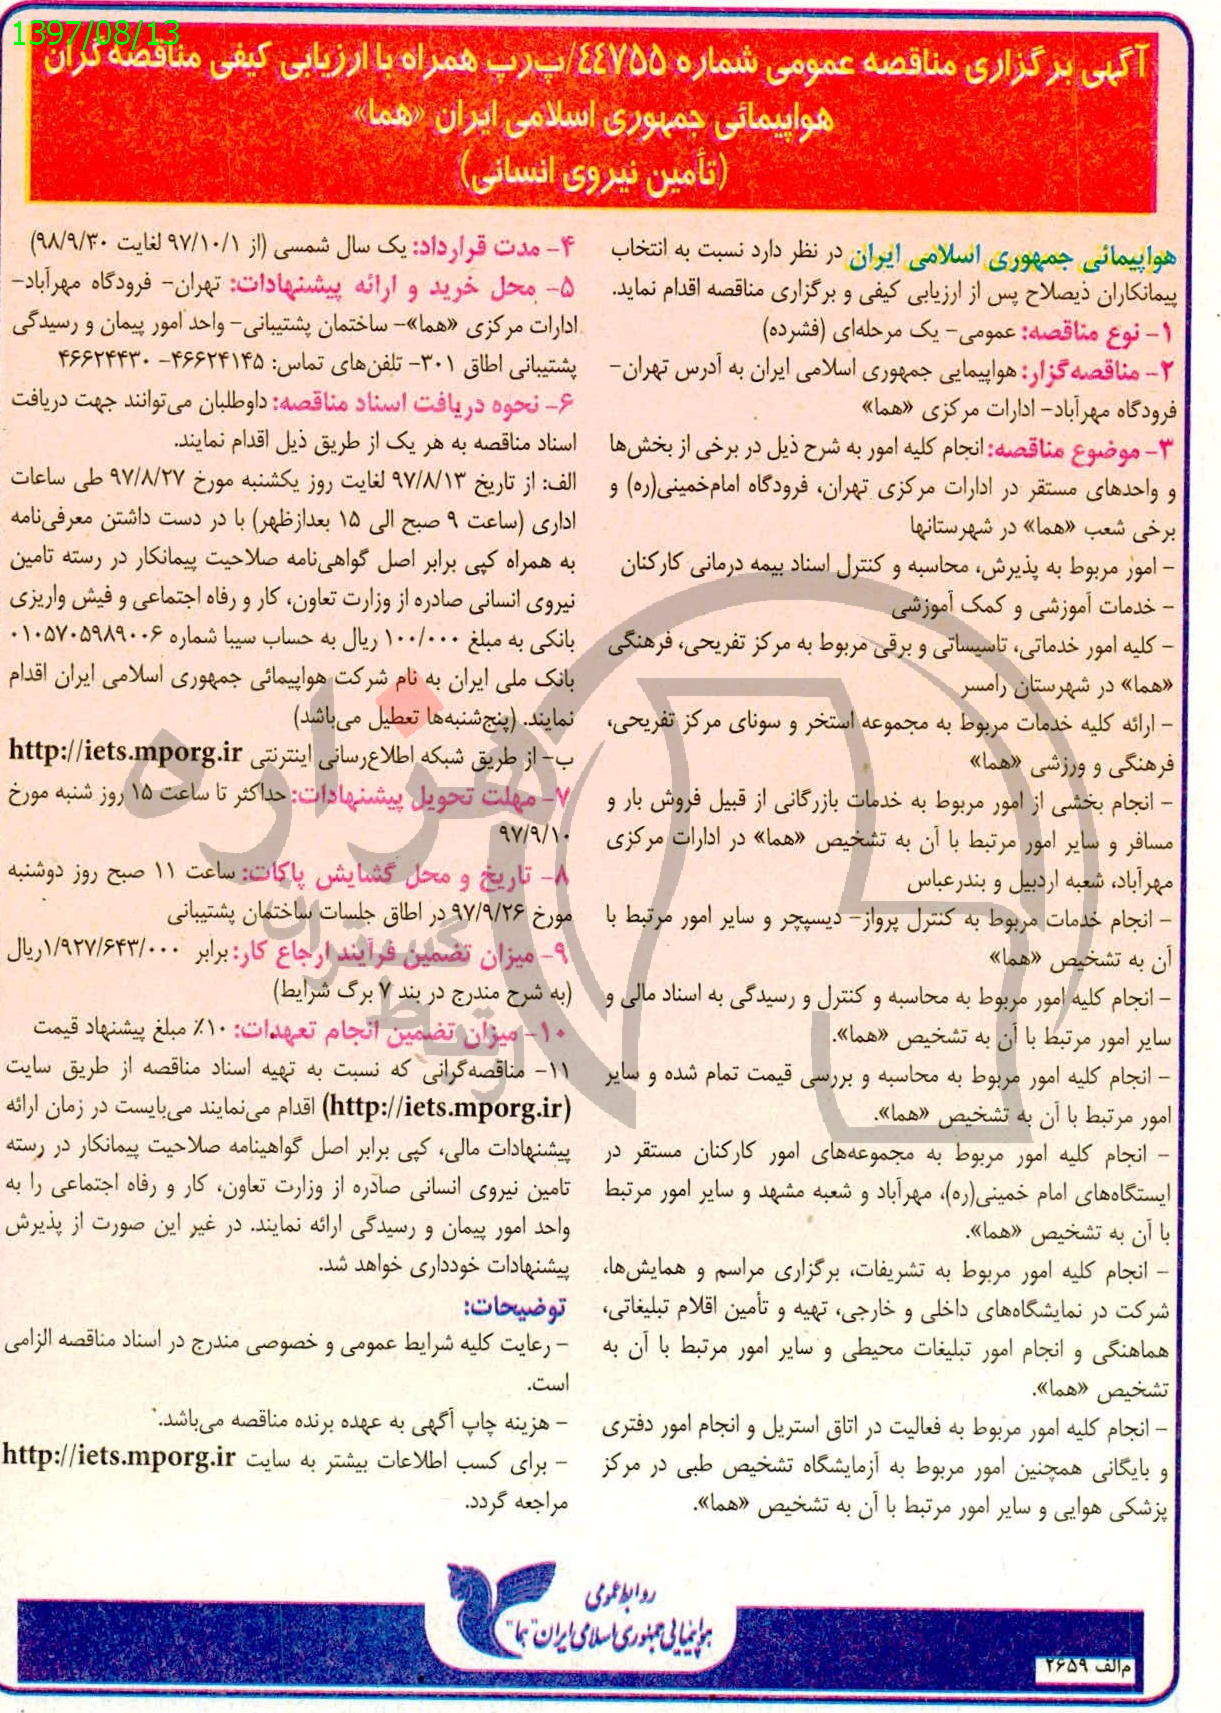 1397/08/13
آگهی برگزاری مناقصه عمومی شماره ۴۴۷۵۵/پ‌رپ همراه با ارزیابی کیفی مناقصه گران
هواپیمائی جمهوری اسلامی ایران «هما»
(تأمین نیروی انسانی)
هواپیمائی جمهوری اسلامی ایران در نظر دارد نسبت به انتخاب
پیمانکاران ذیصلاح پس از ارزیابی کیفی و برگزاری مناقصه اقدام نماید.
۱- نوع مناقصه: عمومی- یک مرحله‌ای (فشرده)
۲- مناقصه‌گزار: هواپیمایی جمهوری اسلامی ایران به آدرس تهران-
فرودگاه مهرآباد- ادارات مرکزی «هما»
۳- موضوع مناقصه: انجام کلیه امور به شرح ذیل در برخی از بخش‌ها
و واحدهای مستقر در ادارات مرکزی تهران، فرودگاه امام‌خمینی(ره) و
برخی شعب «هما» در شهرستانها
- امور مربوط به پذیرش، محاسبه و کنترل اسناد بیمه درمانی کارکنان
- خدمات آموزشی و کمک آموزشی
- کلیه امور خدماتی، تاسیساتی و برقی مربوط به مرکز تفریحی، فرهنگی
«هما» در شهرستان رامسر
- ارائه کلیه خدمات مربوط به مجموعه استخر و سونای مرکز تفریحی،
فرهنگی و ورزشی «هما»
- انجام بخشی از امور مربوط به خدمات بازرگانی از قبیل فروش بار و
مسافر و سایر امور مرتبط با آن به تشخیص «هما» در ادارات مرکزی
مهرآباد، شعبه اردبیل و بندرعباس
- انجام خدمات مربوط به کنترل پرواز- دیسپچر و سایر امور مرتبط با
آن به تشخیص «هما»
- انجام کلیه امور مربوط به محاسبه و کنترل و رسیدگی به اسناد مالی و
سایر امور مرتبط با آن به تشخیص «هما».
- انجام کلیه امور مربوط به محاسبه و بررسی قیمت تمام شده و سایر
امور مرتبط با آن به تشخیص «هما».
- انجام کلیه امور مربوط به مجموعه‌های امور کارکنان مستقر در
ایستگاه‌های امام خمینی(ره)، مهرآباد و شعبه مشهد و سایر امور مرتبط
با آن به تشخیص «هما».
- انجام کلیه امور مربوط به تشریفات، برگزاری مراسم و همایش‌ها،
شرکت در نمایشگاه‌های داخلی و خارجی، تهیه و تأمین اقلام تبلیغاتی،
هماهنگی و انجام امور تبلیغات محیطی و سایر امور مرتبط با آن به
تشخیص «هما».
- انجام کلیه امور مربوط به فعالیت در اتاق استریل و انجام امور دفتری
و بایگانی همچنین امور مربوط به آزمایشگاه تشخیص طبی در مرکز
پزشکی هوایی و سایر امور مرتبط با آن به تشخیص «هما».
۴- مدت قرارداد: یک سال شمسی (از ۹۷/۱۰/۱ لغایت ۹۸/۹/۳۰)
۵- محل خرید و ارائه پیشنهادات: تهران- فرودگاه مهرآباد-
ادارات مرکزی «هما»- ساختمان پشتیبانی- واحد امور پیمان و رسیدگی
پشتیبانی اطاق ۳۰۱- تلفن‌های تماس: ۴۶۶۲۴۱۴۵- ۴۶۶۲۴۴۳۰
۶- نحوه دریافت اسناد مناقصه: داوطلبان می‌توانند جهت دریافت
اسناد مناقصه به هر یک از طریق ذیل اقدام نمایند.
الف: از تاریخ ۹۷/۸/۱۳ لغایت روز یکشنبه مورخ ۹۷/۸/۲۷ طی ساعات
اداری (ساعت ۹ صبح الی ۱۵ بعدازظهر) با در دست داشتن معرفی‌نامه
به همراه کپی برابر اصل گواهی‌نامه صلاحیت پیمانکار در رسته تامین
نیروی انسانی صادره از وزارت تعاون، کار و رفاه اجتماعی و فیش واریزی
بانکی به مبلغ ۱۰۰/۰۰۰ ریال به حساب سیبا شماره ۰۱۰۵۷۰۵۹۸۹۰۰۶
بانک ملی ایران به نام شرکت هواپیمائی جمهوری اسلامی ایران اقدام
نمایند. (پنج‌شنبه‌ها تعطیل می‌باشد)
ب- از طریق شبکه اطلاع‌رسانی اینترنتی http://iets.mporg.ir
۷- مهلت تحویل پیشنهادات: حداکثر تا ساعت ۱۵ روز شنبه مورخ
۹۷/۹/۱۰
۸- تاریخ و محل گشایش پاکات: ساعت ۱۱ صبح روز دوشنبه
مورخ ۹۷/۹/۲۶ در اطاق جلسات ساختمان پشتیبانی
۹- میزان تضمین فرآیند ارجاع کار: برابر ۱/۹۲۷/۶۴۳/۰۰۰ریال
(به شرح مندرج در بند ۷ برگ شرایط)
۱۰- میزان تضمین انجام تعهدات: ۱۰٪ مبلغ پیشنهاد قیمت
۱۱- مناقصه‌گرانی که نسبت به تهیه اسناد مناقصه از طریق سایت
(http://iets.mporg.ir) اقدام می‌نمایند می‌بایست در زمان ارائه
پیشنهادات مالی، کپی برابر اصل گواهینامه صلاحیت پیمانکار در رسته
تامین نیروی انسانی صادره از وزارت تعاون، کار و رفاه اجتماعی را به
واحد امور پیمان و رسیدگی ارائه نمایند. در غیر این صورت از پذیرش
پیشنهادات خودداری خواهد شد.
توضیحات:
- رعایت کلیه شرایط عمومی و خصوصی مندرج در اسناد مناقصه الزامی
است.
- هزینه چاپ آگهی به عهده برنده مناقصه می‌باشد.
- برای کسب اطلاعات بیشتر به سایت http://iets.mporg.ir
مراجعه گردد.
روابط عمومی
هواپیمایی جمهوری اسلامی ایران "هما"
م‌الف ۲۶۵۹